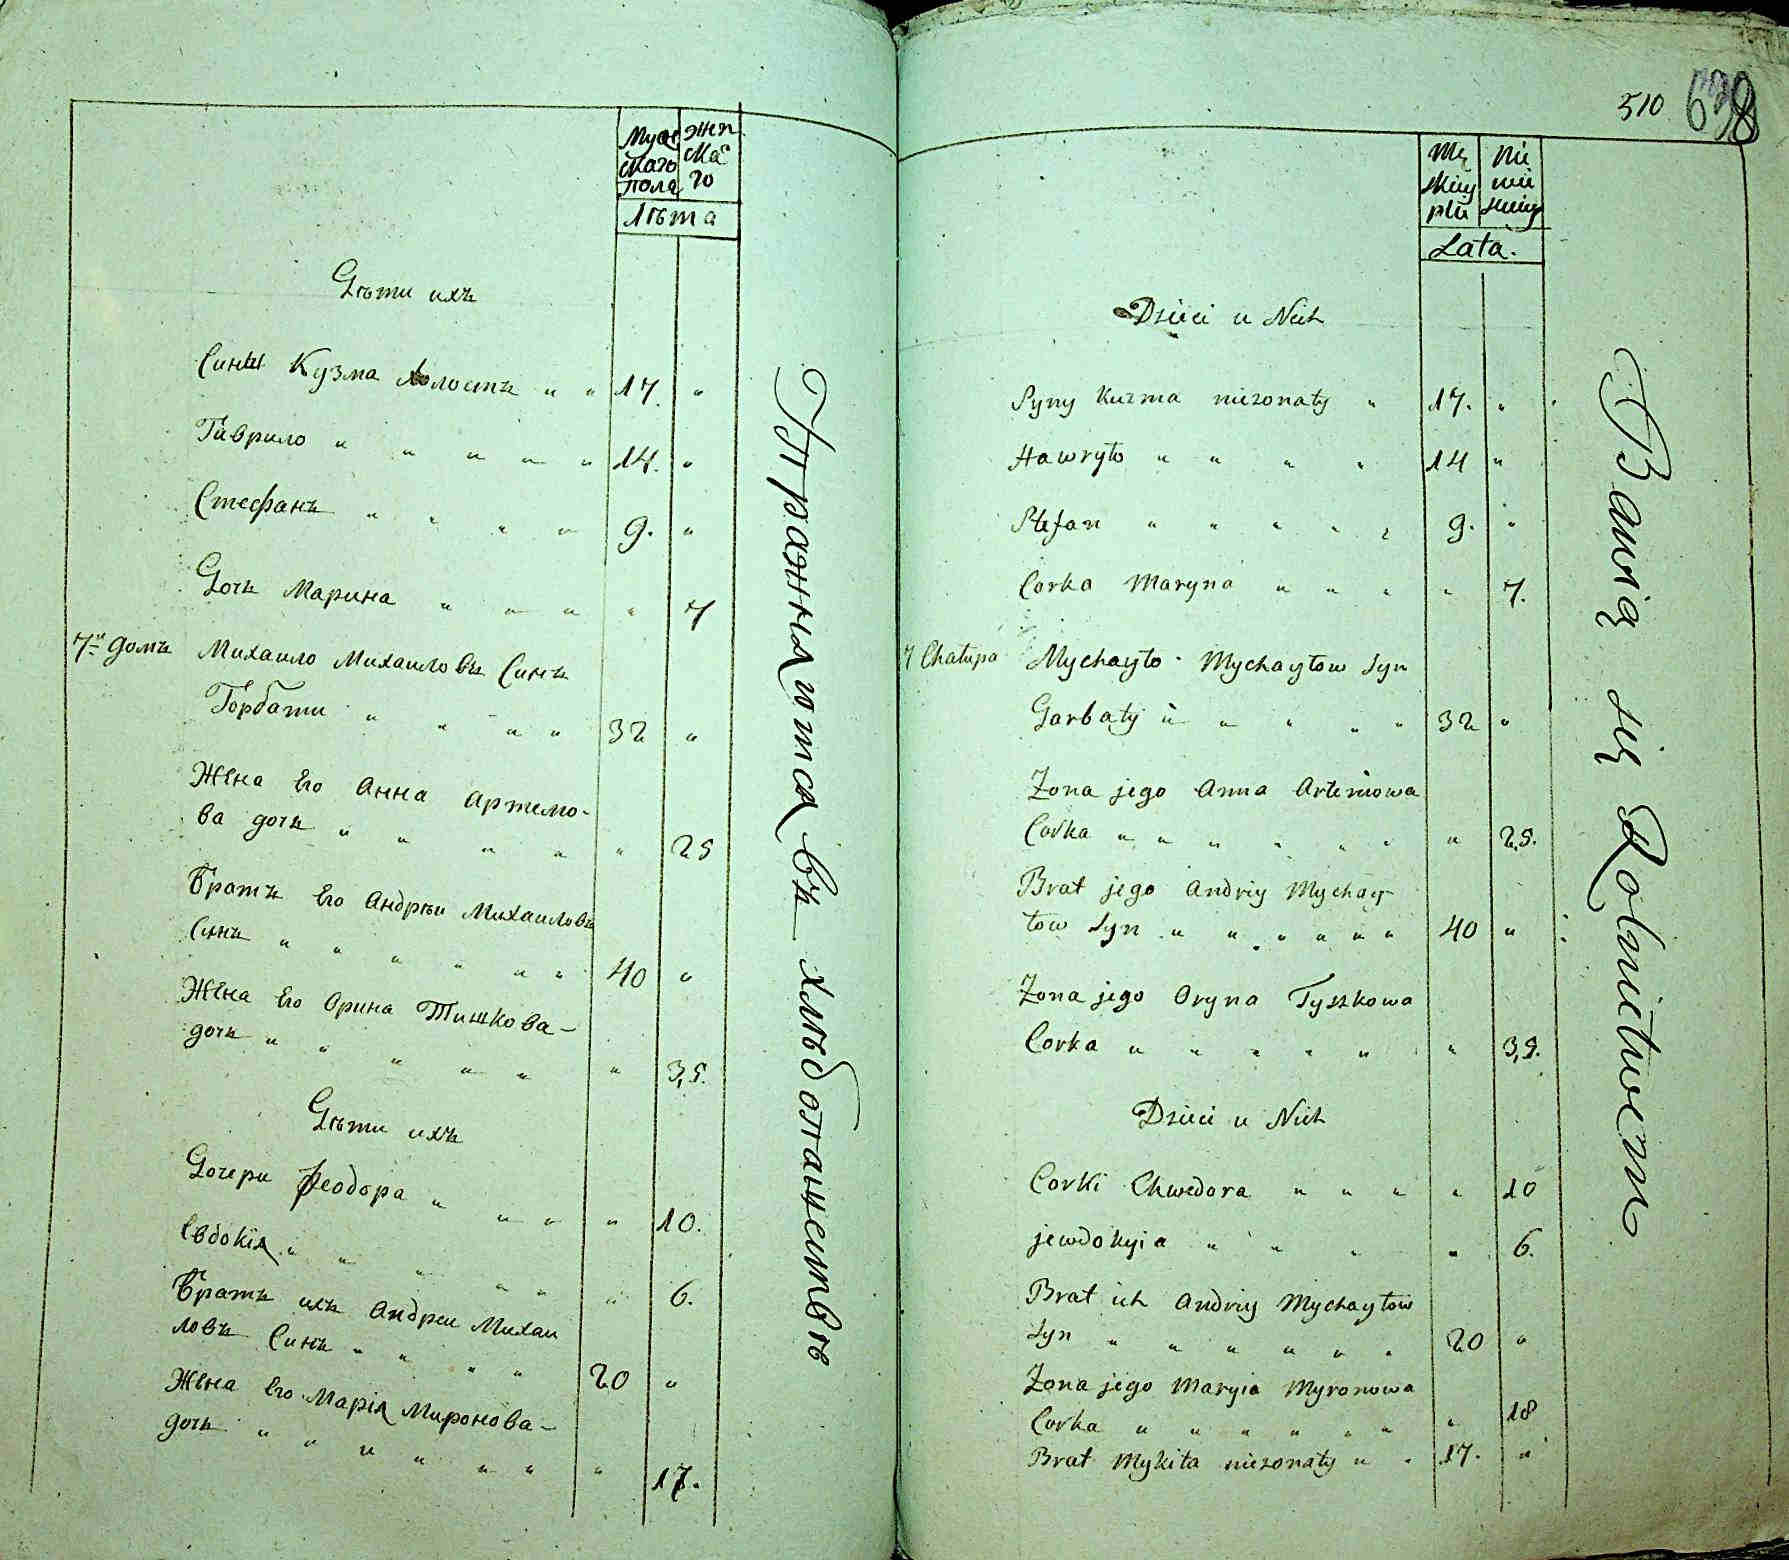 Муже
скаго
пола
жен
ска
го
лѣта
Дѣти ихъ
Сини Кузма холостъ " " 17. "
Гаврило " " " " " 14. "
Стефанъ " " " " 9. "
Дочь Марина " " " " 7
7й домъ Михаило Михаиловъ Синъ
Горбати " " " " 32 "
Жена Его Анна Артемо-
ва дочь " " " " " 25
Братъ Его Андрѣи Михаиловъ
Синъ " " " " " " 40 "
Жена Его Орина Тишкова-
дочь " " " " " " 35.
Дѣти ихъ
Дочери Феодора " " " " 10.
Евдокія " " " " " " 6.
Братъ ихъ Андреи Михаи
ловъ Синъ " " " " 20 "
Жена Его Марія Миронова-
дочь " " " " " " " 17.
Упражняются въ хлѣбопашествѣ
510 698
Mę
skiey
płci
Nie
wie
skiey
Lata.
Dzieci u Nich
Syny Kuzma niezonaty " 17. "
Hawryło " " " " 14 "
Stefan " " " " " 9. "
Corka Maryna " " " " 7.
7 Chałupa Mychayło Mychayłow Syn
Garbaty " " " " " 32 "
Zona jego Anna Artemowa
Corka " " " " " " " 25.
Brat jego Andriy Mychay
łow Syn " " " " " " 40 "
Zona jego Oryna Tyszkowa
Corka " " " " " " 35.
Dzieci u Nich
Corki Chwedora " " " " 10
jewdokyia " " " " 6.
Brat ich Andriy Mychayłow
Syn " " " " " " 20 "
Zona jego Maryia Myronowa
Corka " " " " " " " 18
Brat Mykita niezonaty " " 17. "
Bawią się Rolnictwem